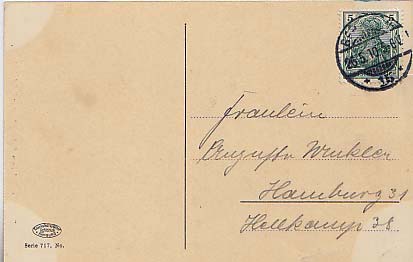 5 5
15
Fräulein
Auguste Winkler
Hamburg 31
Hellkamp 38
Serie 717. No.